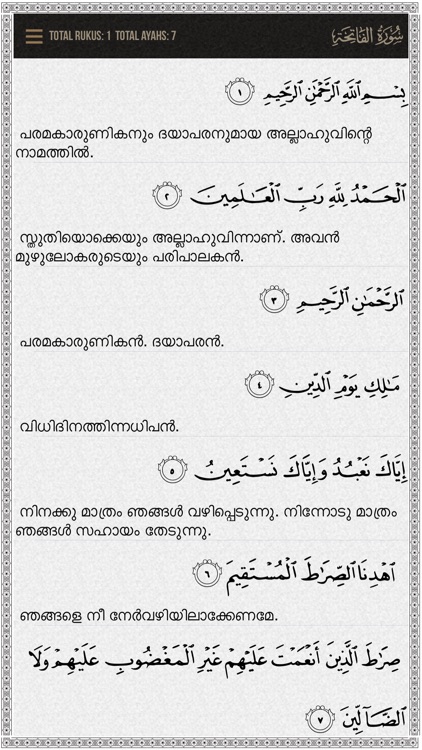 TOTAL RUKUS: 1 TOTAL AYAHS: 7 سُورَةُ الفَاتِحَةِ
بِسْمِ ٱللَّهِ ٱلرَّحْمَٰنِ ٱلرَّحِيمِ ١
പരമകാരുണികനും ദയാപരനുമായ അല്ലാഹുവിന്റെ
നാമത്തില്‍.
ٱلْحَمْدُ لِلَّهِ رَبِّ ٱلْعَـٰلَمِينَ ٢
സ്തുതിയൊക്കെയും അല്ലാഹുവിന്നാണ്. അവന്‍
മുഴുലോകരുടെയും പരിപാലകന്‍.
ٱلرَّحْمَٰنِ ٱلرَّحِيمِ ٣
പരമകാരുണികന്‍. ദയാപരന്‍.
مَـٰلِكِ يَوْمِ ٱلدِّينِ ٤
വിധിദിനത്തിന്നധിപന്‍.
إِيَّاكَ نَعْبُدُ وَإِيَّاكَ نَسْتَعِينُ ٥
നിനക്കു മാത്രം ഞങ്ങള്‍ വഴിപ്പെടുന്നു. നിന്നോടു മാത്രം
ഞങ്ങള്‍ സഹായം തേടുന്നു.
ٱهْدِنَا ٱلصِّرَٰطَ ٱلْمُسْتَقِيمَ ٦
ഞങ്ങളെ നീ നേര്‍വഴിയിലാക്കേണമേ.
صِرَٰطَ ٱلَّذِينَ أَنْعَمْتَ عَلَيْهِمْ غَيْرِ ٱلْمَغْضُوبِ عَلَيْهِمْ وَلَا
ٱلضَّآلِّينَ ٧